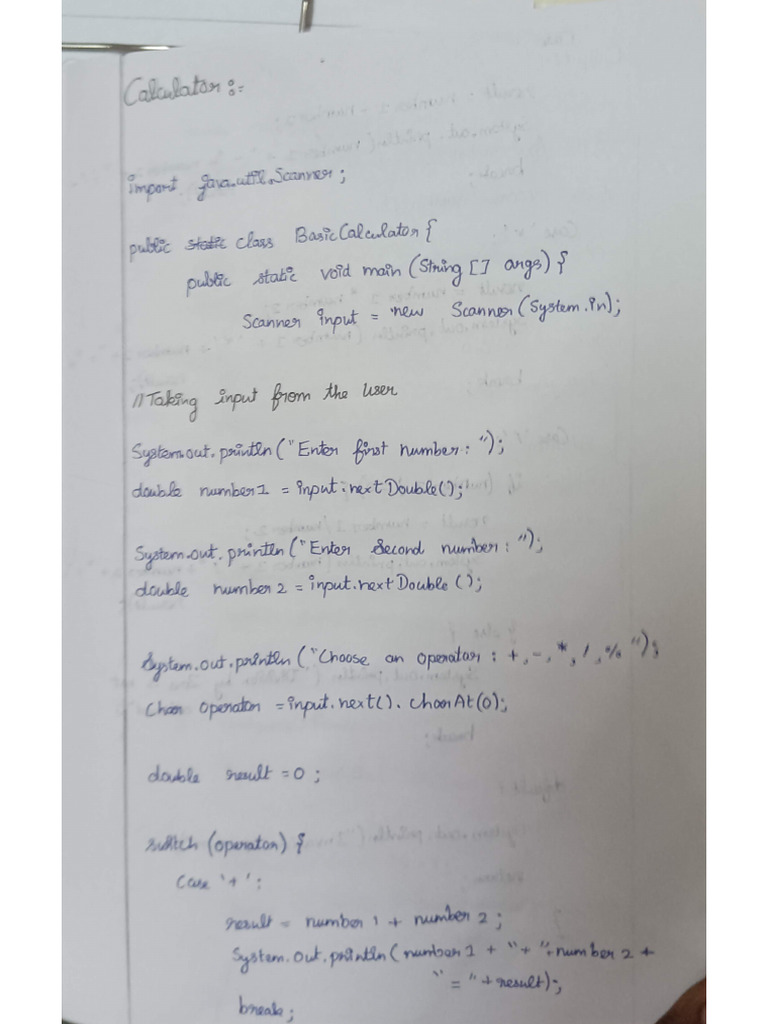 Calculator:-
import java.util.Scanner;
public static class BasicCalculator{
public static void main (String [] args) {
Scanner input = new Scanner(System.in);
//Taking input from the user
System.out.println("Enter first number: ");
double number1 = input.nextDouble();
System.out.println("Enter Second number: ");
double number2 = input.nextDouble();
System.out.println("Choose an operator: +,-,*,/,% ");
Char operator = input.next().charAt(0);
double result = 0;
switch (operator) {
Case '+':
result = number1 + number2;
System.out.println(number1 + "+ "+number2 +
" = "+result);
break;